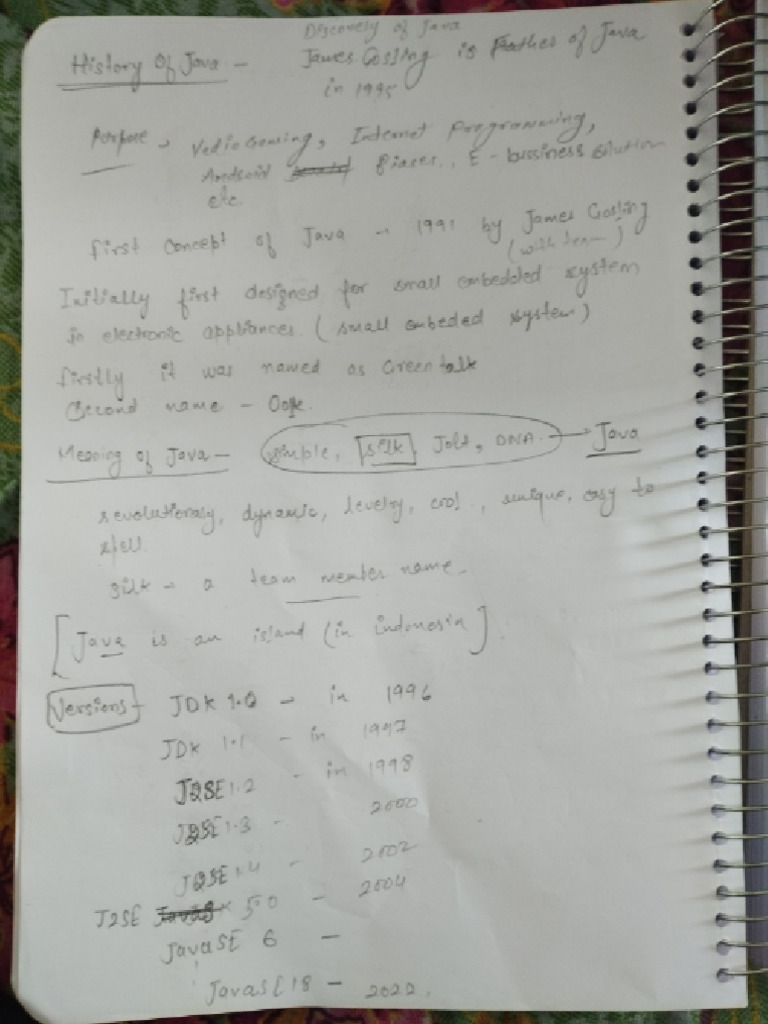 Discovery of Java
History Of Java - James Gosling is Father of Java
in 1995
Purpose → Vedio Gaming, Internet Programming,
Android , E-bussiness Solution
etc.
first Concept of Java → 1991 by James Gosling
(with team)
Initially first designed for small embedded system
in electronic appliances. (small embeded system)
firstly it was named as Green talk
Second name - Oak.
Meaning of Java - simple, silk, Jolt, DNA. → Java
revolutionary, dynamic, levelry, cool, unique, easy to
spell
silk → a team member name.
[Java is an island (in indonesia)].
Versions - JDK 1.0 - in 1996
JDK 1.1 - in 1997
J2SE 1.2 - in 1998
J2SE 1.3 - 2000
J2SE 1.4 - 2002
J2SE 5.0 - 2004
JavaSE 6 -
JavaSE 18 - 2022.